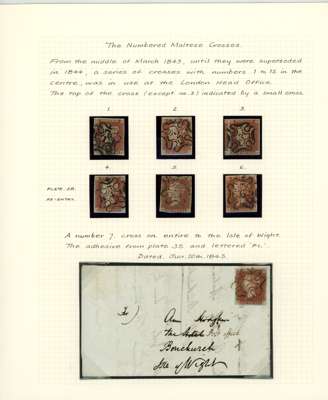 "The Numbered Maltese Crosses.
From the middle of March 1843, until they were superseded
in 1844, a series of crosses with numbers 1 to 12 in the
centre, was in use at the London Head Office.
The top of the cross (except no. 3) indicated by a small cross.
1. 2. 3.
4. 5. 6.
PLATE 28.
RE-ENTRY.
A number 7. cross on entire to the Isle of Wight.
The adhesive from plate 35 and lettered
Dated, Jun. 20th. 1843.
Ann
the Post office
Bonchurch
Isle of Wight